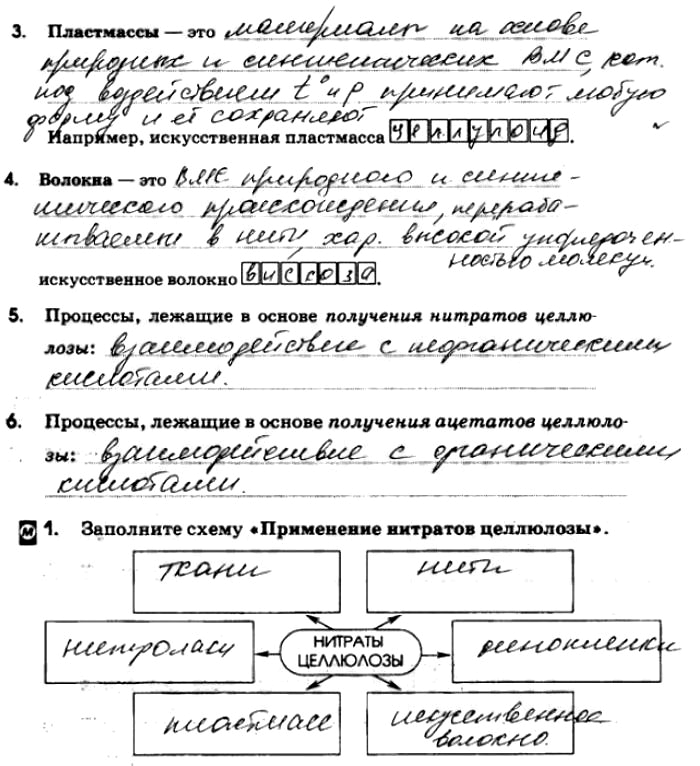 3. Пластмассы — это материалы на основе
природных и синтетических ВМС, кот.
под воздействием t° и p принимают любую
форму и её сохраняют
Например, искусственная пластмасса целлулоид.
4. Волокна — это ВМС природного и синте-
тического происхождения, перераба-
тываемые в нити, хар. высокой упорядочен-
ностью молекул.
искусственное волокно вискоза.
5. Процессы, лежащие в основе получения нитратов целлю-
лозы: взаимодействие с неорганическими
кислотами.
6. Процессы, лежащие в основе получения ацетатов целлюло-
зы: взаимодействие с органическими
кислотами.
М 1. Заполните схему «Применение нитратов целлюлозы».
ткани нити
нитролаки НИТРАТЫ ЦЕЛЛЮЛОЗЫ кинопленки
пластмасс искусственное
волокно.